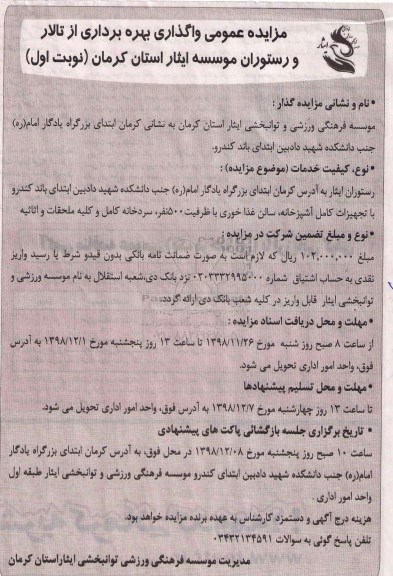 مزایده عمومی واگذاری بهره برداری از تالار
و رستوران موسسه ایثار استان کرمان (نوبت اول)
• نام و نشانی مزایده گذار :
موسسه فرهنگی ورزشی و توانبخشی ایثار استان کرمان به نشانی کرمان ابتدای بزرگراه یادگار امام(ره)
جنب دانشکده شهید دادبین ابتدای باند کندرو.
• نوع، کیفیت خدمات (موضوع مزایده) :
رستوران ایثار به آدرس کرمان ابتدای بزرگراه یادگار امام(ره) جنب دانشکده شهید دادبین ابتدای باند کندرو
با تجهیزات کامل آشپزخانه، سالن غذا خوری با ظرفیت ۵۰۰نفر، سردخانه کامل و کلیه ملحقات و اثاثیه
• نوع و مبلغ تضمین شرکت در مزایده :
مبلغ ۱۰۲,۰۰۰,۰۰۰ ریال که لازم است به صورت ضمانت نامه بانکی بدون قیدو شرط یا رسید واریز
نقدی به حساب اشتیاق شماره ۰۲۰۳۳۳۲۹۹۵۰۰۰ نزد بانک دی،شعبه استقلال به نام موسسه ورزشی و
توانبخشی ایثار قابل واریز در کلیه شعب بانک دی ارائه گردد.
• مهلت و محل دریافت اسناد مزایده :
از ساعت ۸ صبح روز شنبه مورخ ۱۳۹۸/۱۱/۲۶ تا ساعت ۱۳ روز پنجشنبه مورخ ۱۳۹۸/۱۲/۱ به آدرس
فوق، واحد امور اداری تحویل می شود.
• مهلت و محل تسلیم پیشنهادها
تا ساعت ۱۳ روز چهارشنبه مورخ ۱۳۹۸/۱۲/۷ به آدرس فوق، واحد امور اداری تحویل می شود.
• تاریخ برگزاری جلسه بازگشائی پاکت های پیشنهادی
ساعت ۱۰ صبح روز پنجشنبه مورخ ۱۳۹۸/۱۲/۰۸ در محل فوق، به آدرس کرمان ابتدای بزرگراه یادگار
امام(ره) جنب دانشکده شهید دادبین ابتدای کندرو موسسه فرهنگی ورزشی و توانبخشی ایثار طبقه اول
واحد امور اداری .
هزینه درج آگهی و دستمزد کارشناس به عهده برنده مزایده خواهد بود.
تلفن پاسخ گوئی به سوالات ۰۳۴۳۲۱۳۴۵۹۱
مدیریت موسسه فرهنگی ورزشی توانبخشی ایثاراستان کرمان